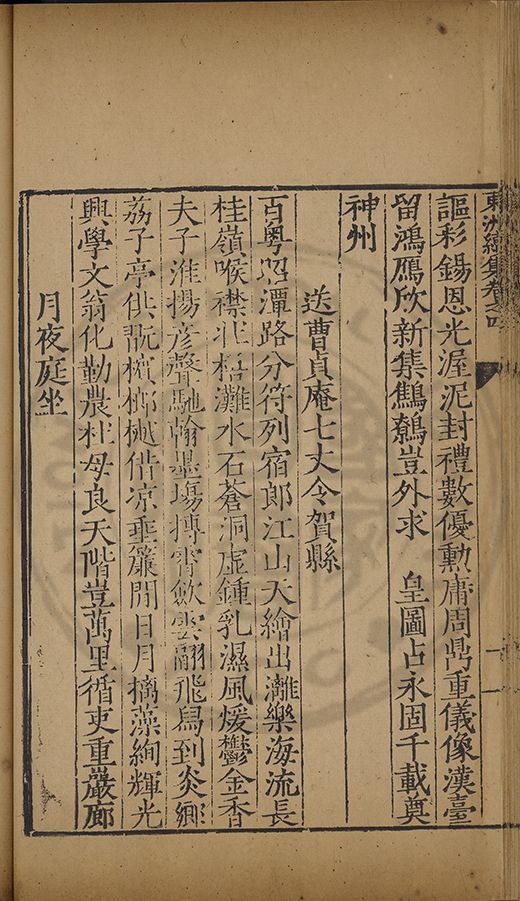 東洲續集卷之四
謳彩錫恩光渥泥封禮數優勲庸周鼎重儀像漢臺
留鴻鴈欣新集鷦鷯豈外求　皇圖占永固千載奠
神州
送曹貞庵七丈令賀縣
百粤昭潭路分符列宿郎江山天繪出灕樂海流長
桂嶺喉襟壯梧灘水石蒼洞虛鍾乳濕風煖鬱金香
夫子淮揚彦聲馳翰墨場摶霄斂雲翮飛舄到炎鄉
荔子亭供翫檳榔樾借凉垂簾閒日月摛藻絢輝光
興學文翁化勤農杜母良天階豈萬里循吏重巖廊
月夜庭坐